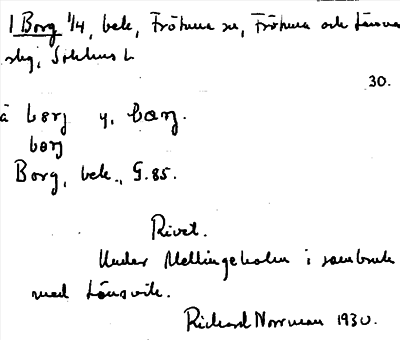 1 Borg 1/4, bek, Frötuna sn, Frötuna och Länna
skg, Sthlms L
30.
ä bǝrj y, bærj.
bǝrj
Borg, bek., G. 85.
Rivet.
Under Mellingeholm i sambruk
med Länsvik.
Richard Norrman 1930.